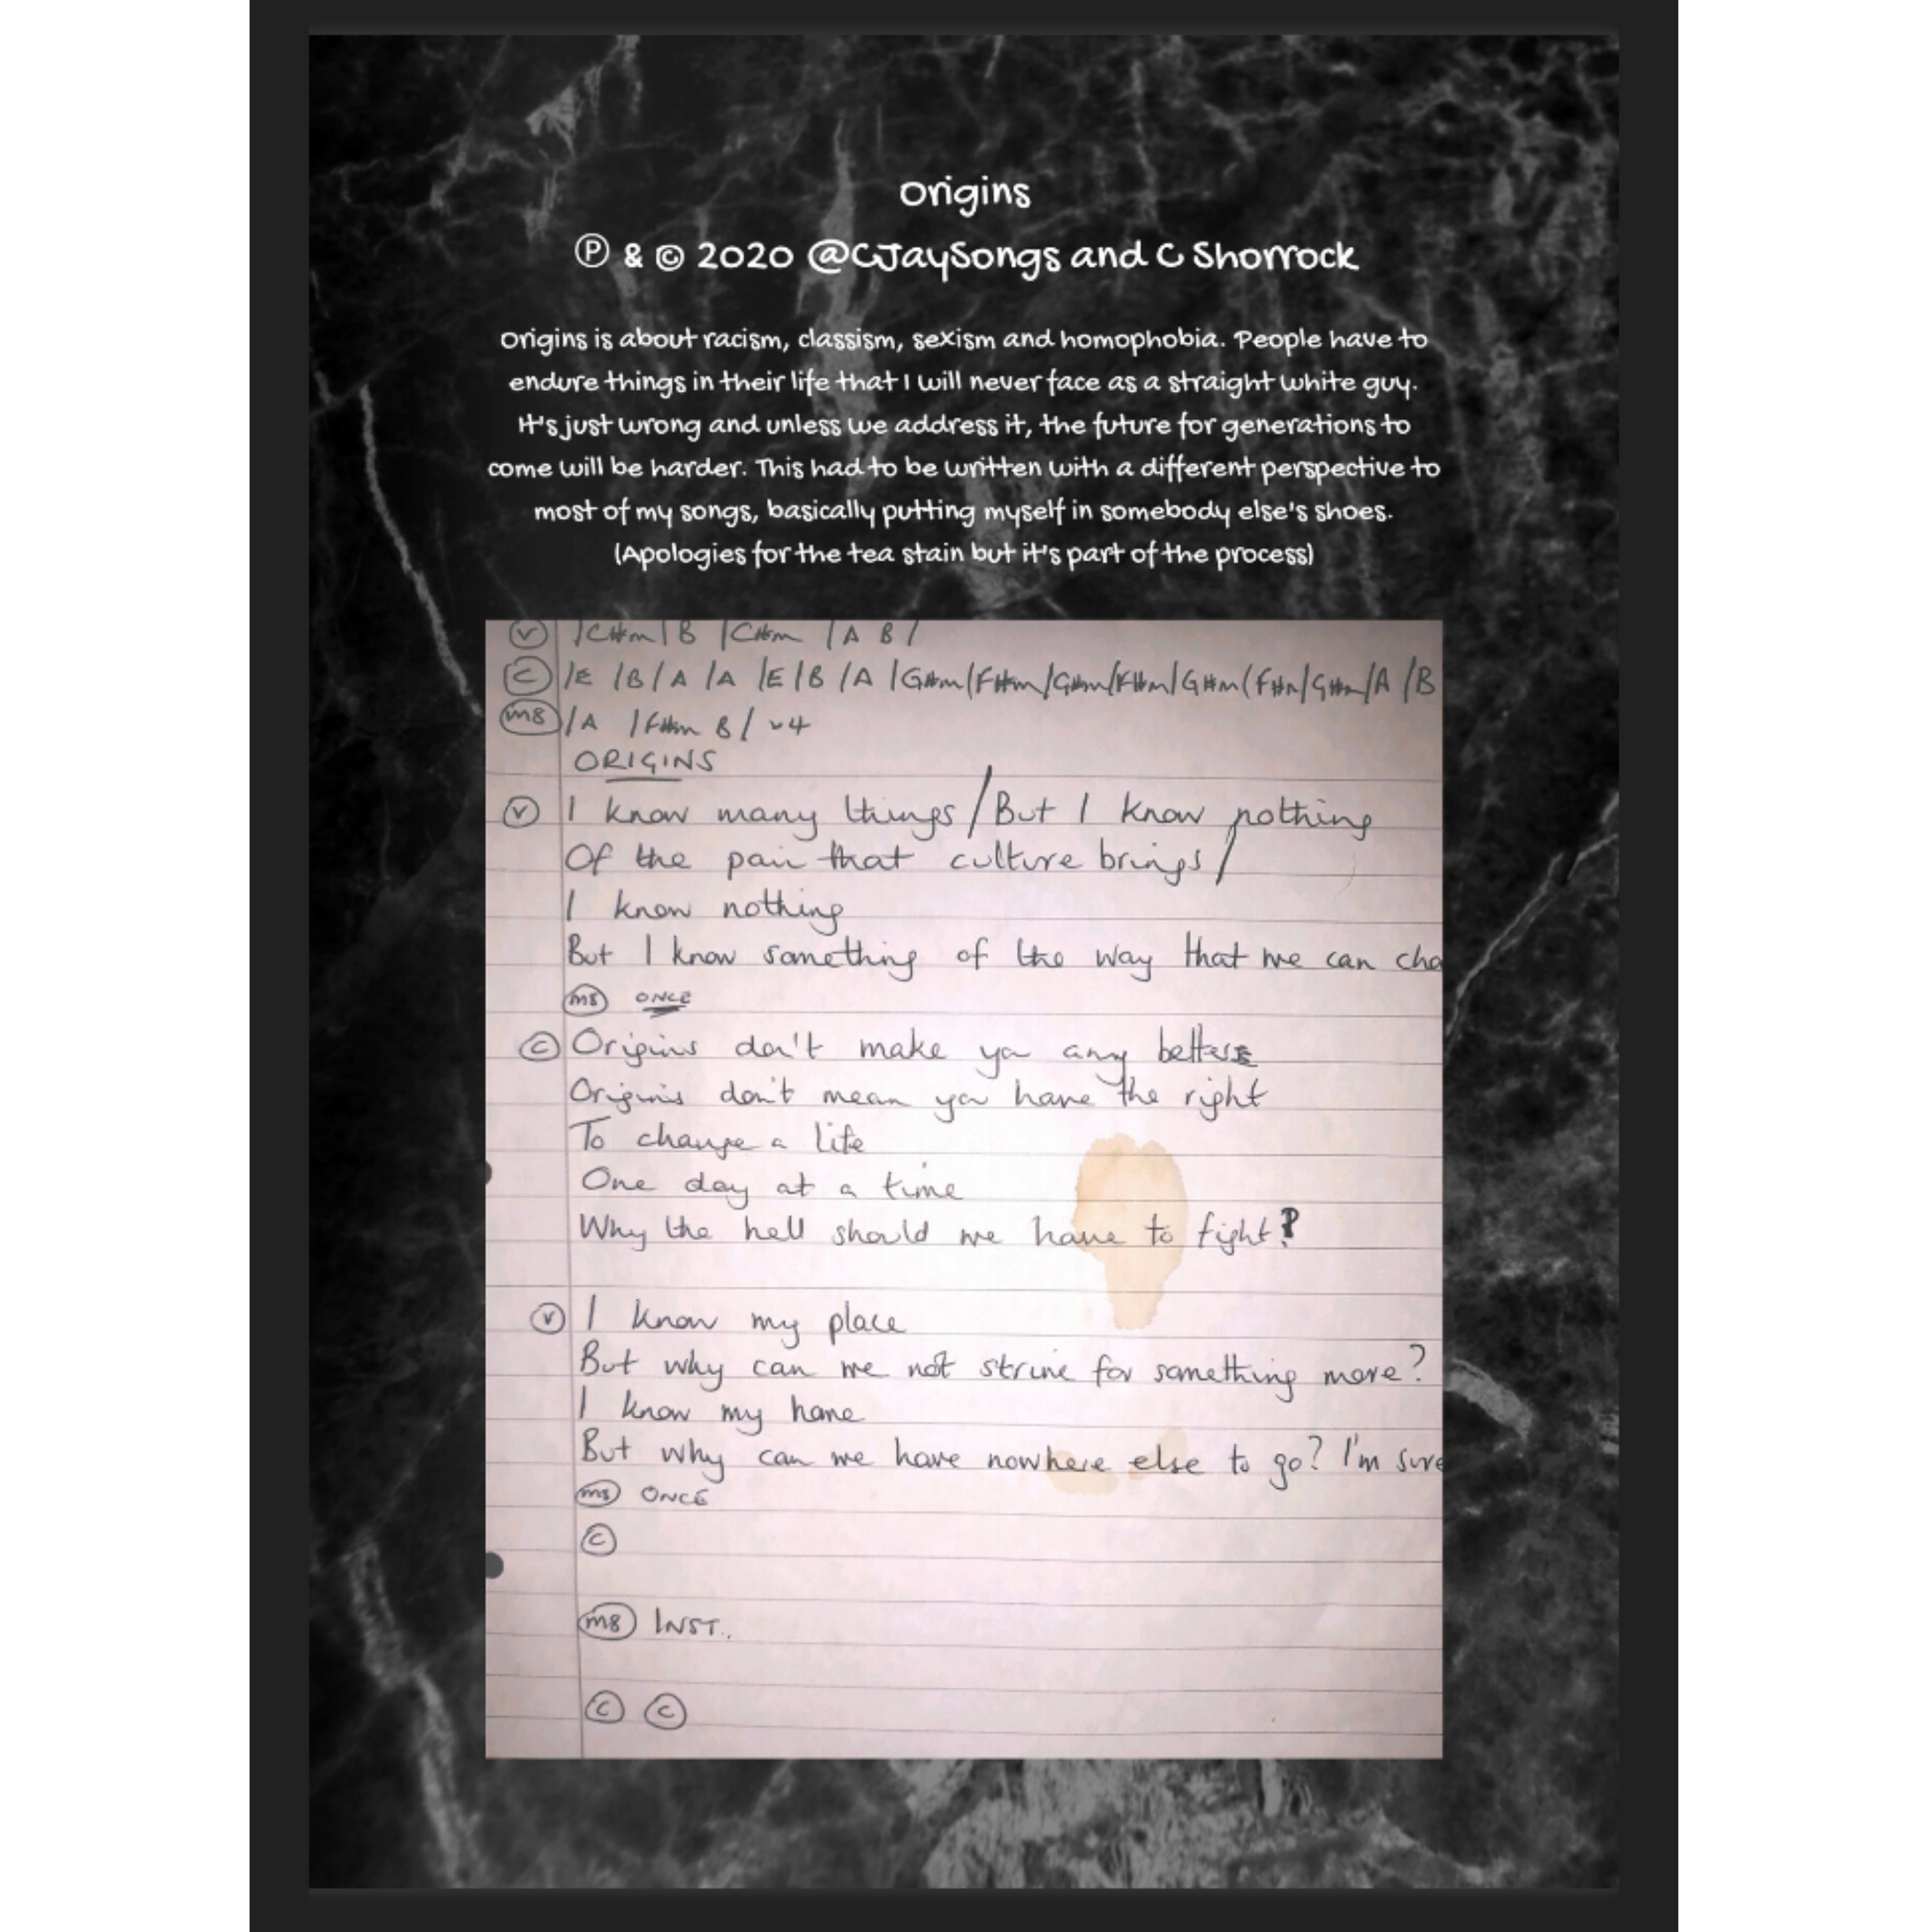 Origins
℗ & © 2020 @CJaySongs and C Shorrock
Origins is about racism, classism, sexism and homophobia. People have to
endure things in their life that I will never face as a straight white guy.
It's just wrong and unless we address it, the future for generations to
come will be harder. This had to be written with a different perspective to
most of my songs, basically putting myself in somebody else's shoes.
(Apologies for the tea stain but it's part of the process)
V /C#m/B /C#m /A B/
C /E /B/A /A /E/B/A /G#m/F#m/G#m/F#m/G#m/F#m/G#m/A /B
m8 /A /F#m B/ x4
ORIGINS
V I know many things/But I know nothing
Of the pain that culture brings/
I know nothing
But I know something of the way that we can cha
m8 ONCE
C Origins don't make you any better
Origins don't mean you have the right
To change a life
One day at a time
Why the hell should we have to fight?
V I know my place
But why can we not strive for something more?
I know my home
But why can we have nowhere else to go? I'm sure
m8 ONCE
C
m8 INST.
C C